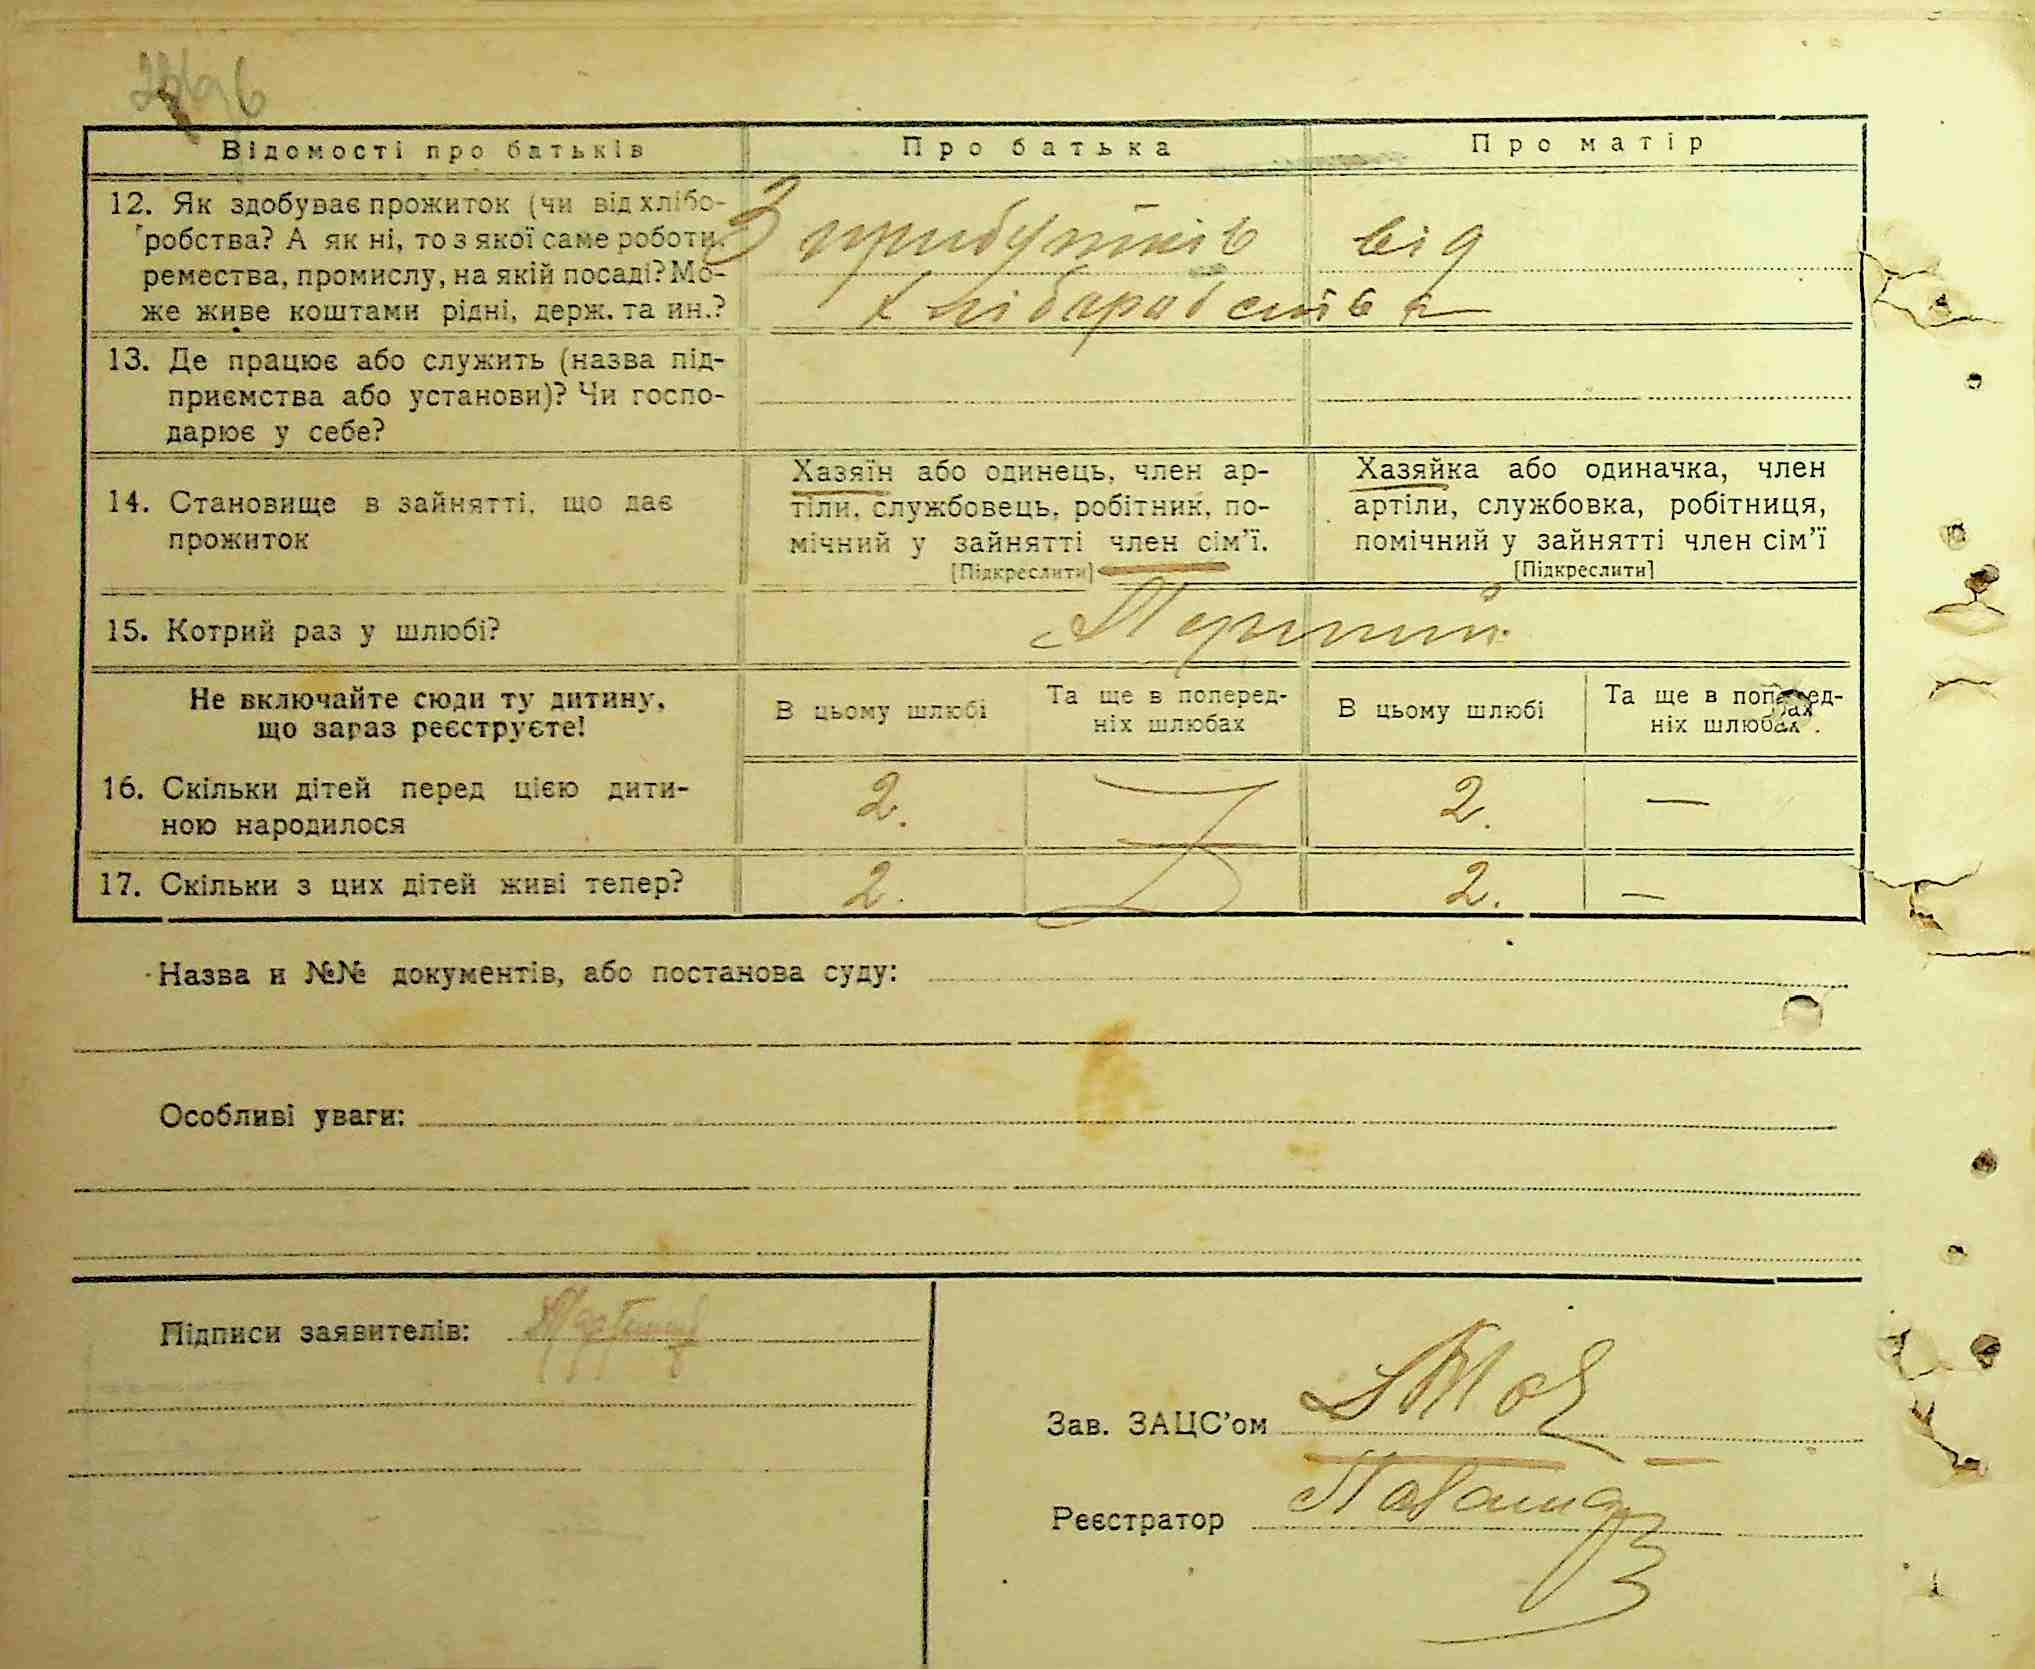 Відомості про батьків
Про батька
Про матір
12. Як здобуває прожиток (чи від хлібо-
робства? А як ні, то з якої саме роботи,
ремества, промислу, на якій посаді? Мо-
же живе коштами рідні, держ. та ин.?
З прибутків від
хліборобства
13. Де працює або служить (назва під-
приємства або установи)? Чи госпо-
дарює у себе?
14. Становище в зайнятті, що дає
прожиток
Хазяїн або одинець, член ар-
тіли, службовець, робітник, по-
мічний у зайнятті член сім'ї.
[Підкреслити]
Хазяйка або одиначка, член
артіли, службовка, робітниця,
помічний у зайнятті член сім'ї
[Підкреслити]
15. Котрий раз у шлюбі?
Перший
Не включайте сюди ту дитину,
що зараз реєструєте!
В цьому шлюбі
Та ще в поперед-
ніх шлюбах
В цьому шлюбі
Та ще в поперед-
ніх шлюбах
16. Скільки дітей перед цією дити-
ною народилося
2.
2.
—
17. Скільки з цих дітей живі тепер?
2.
2.
—
Назва и №№ документів, або постанова суду:
Особливі уваги:
Підписи заявителів:
Зав. ЗАЦС'ом
Реєстратор